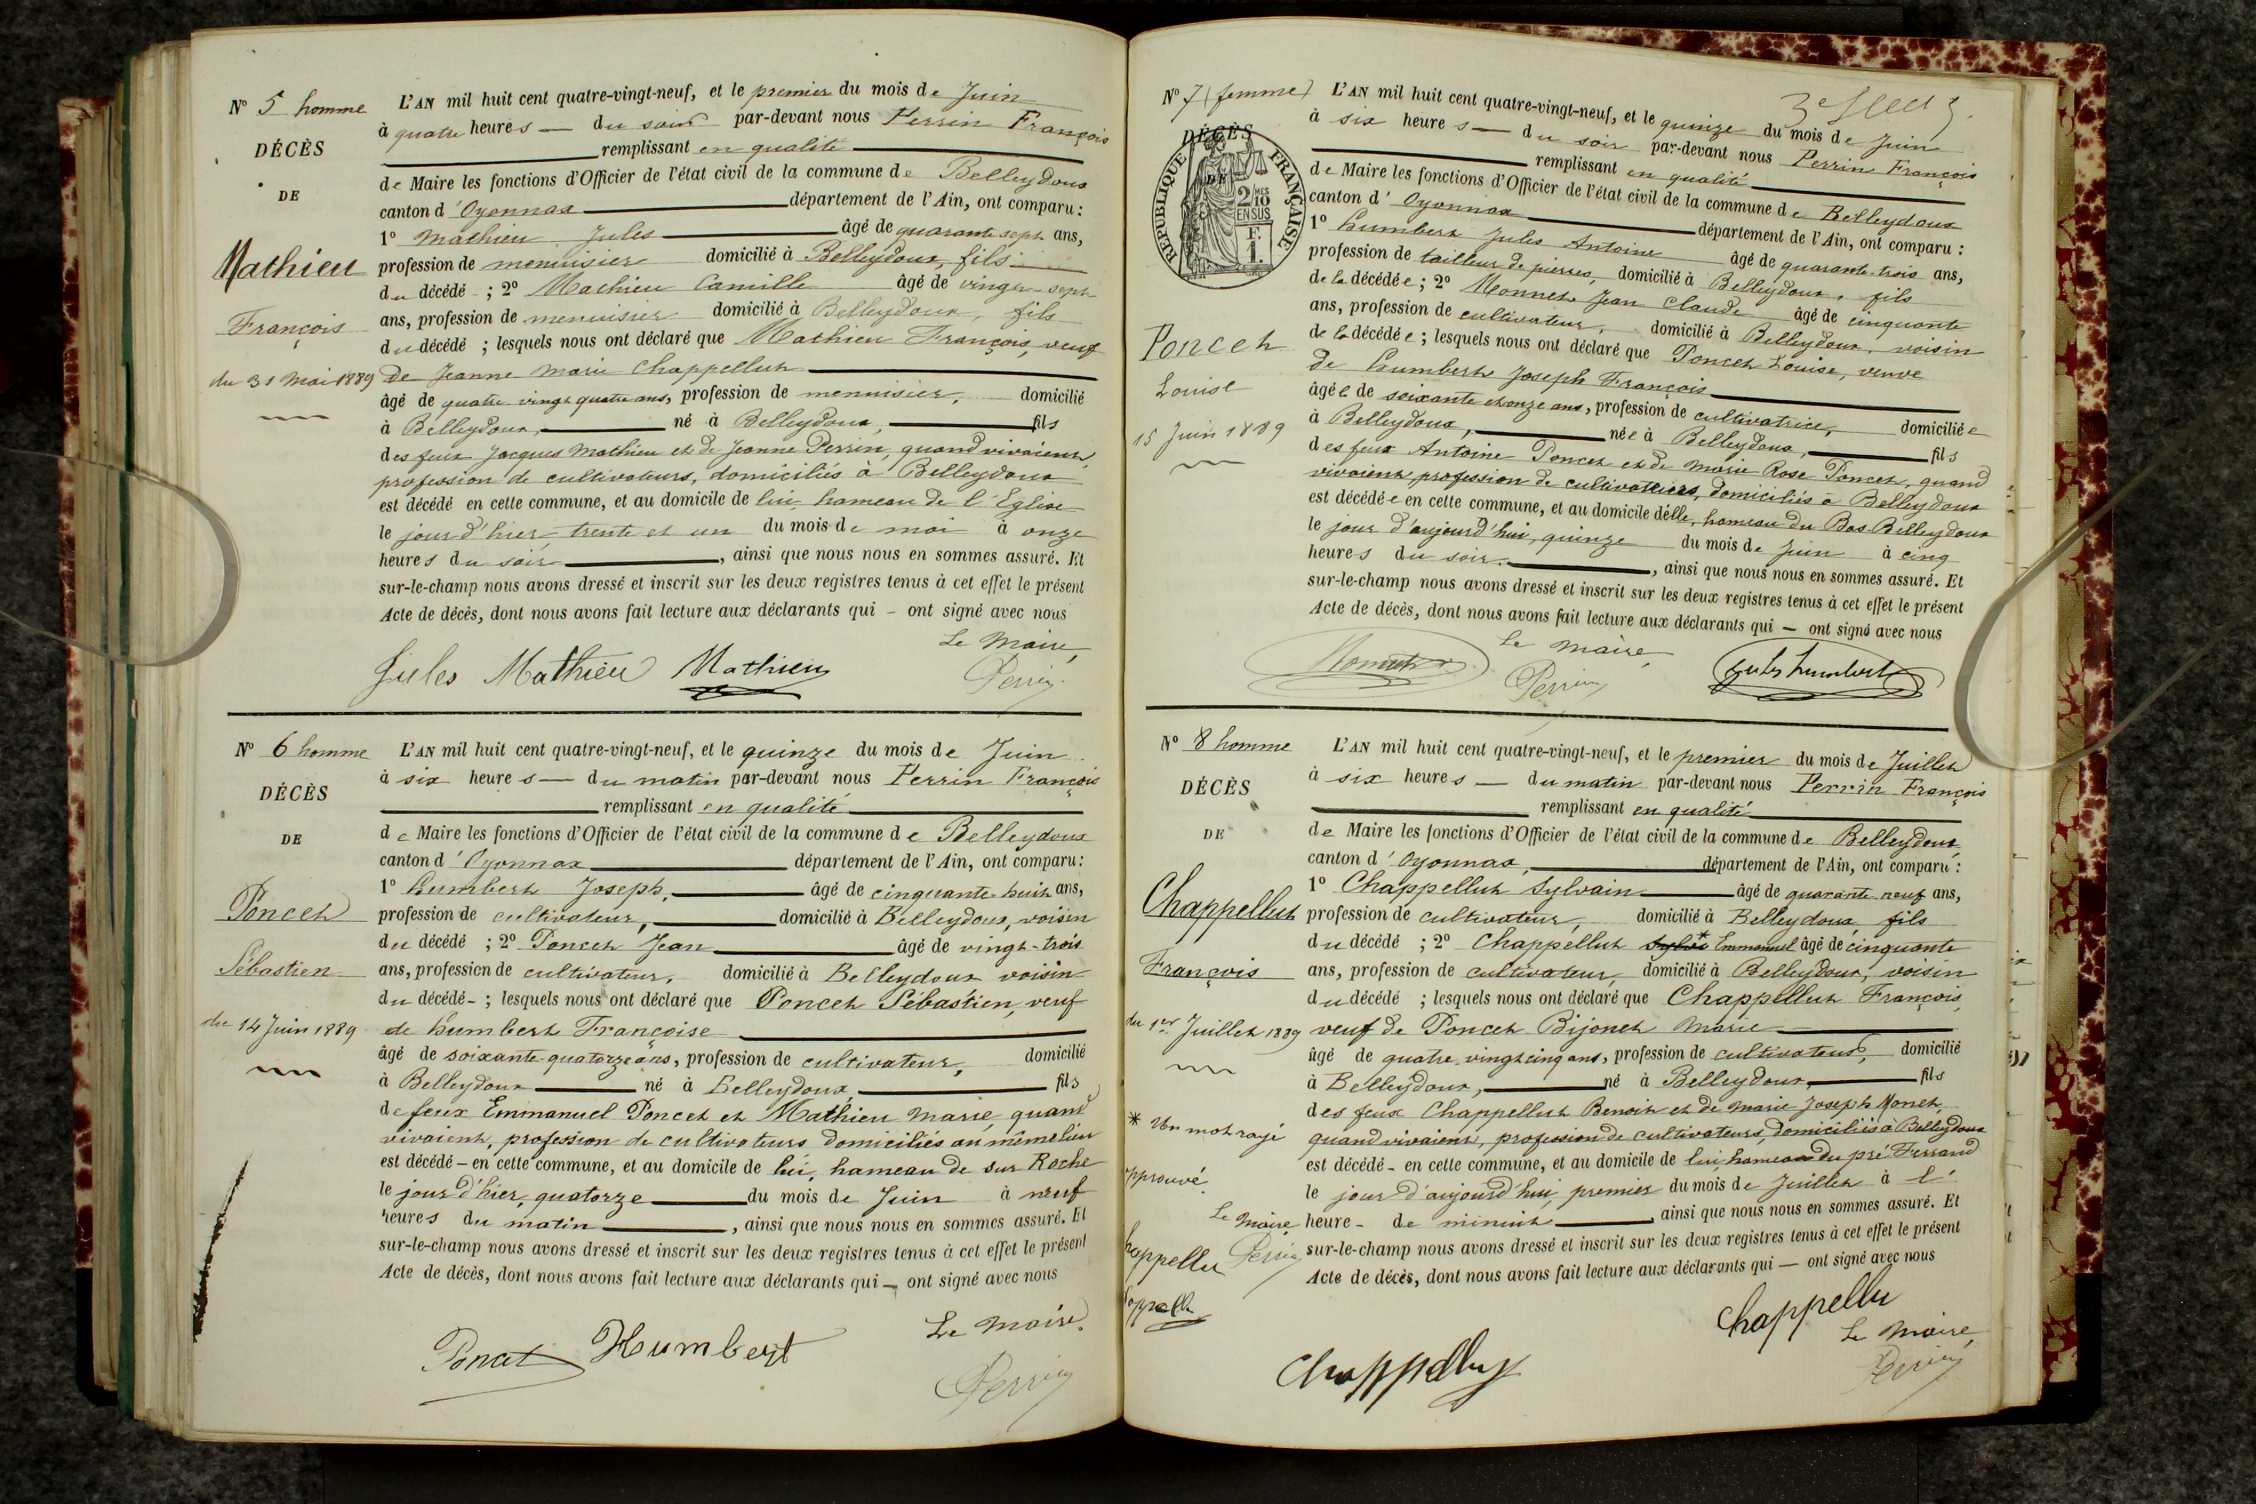 N° 5 homme
DÉCÈS
DE
Mathieu
François
du 31 Mai 1889
L'AN mil huit cent quatre-vingt-neuf, et le premier du mois de Juin
à quatre heures du soir par-devant nous Perrin François
remplissant en qualité
de Maire les fonctions d'Officier de l'état civil de la commune de Belleydoux
canton d'Oyonnax département de l'Ain, ont comparu :
1° Mathieu Jules âgé de quarante sept ans,
profession de menuisier domicilié à Belleydoux, fils
du décédé ; 2° Mathieu Camille âgé de vingt-sept
ans, profession de menuisier domicilié à Belleydoux, fils
du décédé ; lesquels nous ont déclaré que Mathieu François, veuf
De Jeanne Marie Chappellut
âgé de quatre vingt quatre ans, profession de menuisier, domicilié
à Belleydoux, né à Belleydoux, fils
des feux Jacques Mathieu et de Jeanne Perrin, quand vivaient,
profession de cultivateurs, domiciliés à Belleydoux
est décédé en cette commune, et au domicile de lui, hameau de l'Eglise
le jour d'hier, trente et un du mois de mai à onze
heures du soir, ainsi que nous nous en sommes assuré. Et
sur-le-champ nous avons dressé et inscrit sur les deux registres tenus à cet effet le présent
Acte de décès, dont nous avons fait lecture aux déclarants qui – ont signé avec nous
Le Maire,
Jules Mathieu Mathieu Perrin
N° 6 homme
DÉCÈS
DE
Poncet
Sébastien
du 14 Juin 1889
L'AN mil huit cent quatre-vingt-neuf, et le quinze du mois de Juin
à six heures du matin par-devant nous Perrin François
remplissant en qualité
de Maire les fonctions d'Officier de l'état civil de la commune de Belleydoux
canton d'Oyonnax département de l'Ain, ont comparu :
1° Humbert Joseph, âgé de cinquante huit ans,
profession de cultivateur, domicilié à Belleydoux, voisin
du décédé ; 2° Poncet Jean âgé de vingt-trois
ans, profession de cultivateur, domicilié à Belleydoux voisin
du décédé - ; lesquels nous ont déclaré que Poncet Sébastien, veuf
de Humbert Françoise
âgé de soixante-quatorze ans, profession de cultivateur, domicilié
à Belleydoux né à Belleydoux, fils
de feux Emmanuel Poncet et Mathieu Marie, quand
vivaient, profession de cultivateurs domiciliés au même lieu
est décédé – en cette commune, et au domicile de lui, hameau de sur Roche
le jour d'hier, quatorze du mois de Juin à neuf
heures du matin, ainsi que nous nous en sommes assuré. Et
sur-le-champ nous avons dressé et inscrit sur les deux registres tenus à cet effet le présent
Acte de décès, dont nous avons fait lecture aux déclarants qui – ont signé avec nous
Le Maire,
Poncet Humbert Perrin
N° 7 (femme)
DÉCÈS
DE
RÉPUBLIQUE FRANÇAISE
2/10 MES EN SUS
F. 1.
Poncet
Louise
15 Juin 1889
L'AN mil huit cent quatre-vingt-neuf, et le quinze du mois de Juin
à six heures du soir par-devant nous Perrin François
remplissant en qualité
de Maire les fonctions d'Officier de l'état civil de la commune de Belleydoux
canton d'Oyonnax département de l'Ain, ont comparu :
1° Humbert Jules Antoine âgé de quarante-trois ans,
profession de tailleur de pierres, domicilié à Belleydoux, fils
de la décédée ; 2° Monnet Jean Claude âgé de cinquante
ans, profession de cultivateur, domicilié à Belleydoux, voisin
de la décédée ; lesquels nous ont déclaré que Poncet Louise, veuve
de Humbert Joseph François
âgée de soixante et onze ans, profession de cultivatrice, domiciliée
à Belleydoux, née à Belleydoux, fils
des feux Antoine Poncet et de Marie Rose Poncet, quand
vivaient, profession de cultivateurs, domiciliés à Belleydoux
est décédée en cette commune, et au domicile d'elle, hameau du Bas Belleydoux
le jour d'aujourd'hui, quinze du mois de Juin à cinq
heures du soir, ainsi que nous nous en sommes assuré. Et
sur-le-champ nous avons dressé et inscrit sur les deux registres tenus à cet effet le présent
Acte de décès, dont nous avons fait lecture aux déclarants qui – ont signé avec nous
Le Maire,
Perrin Jules humbert
N° 8 homme
DÉCÈS
DE
Chappellut
François
du 1er Juillet 1889
* Un mot rayé
approuvé
Le Maire
Perrin
L'AN mil huit cent quatre-vingt-neuf, et le premier du mois de Juillet
à six heures du matin par-devant nous Perrin François
remplissant en qualité
de Maire les fonctions d'Officier de l'état civil de la commune de Belleydoux
canton d'Oyonnax, département de l'Ain, ont comparu :
1° Chappellut Sylvain âgé de quarante neuf ans,
profession de cultivateur, domicilié à Belleydoux fils
du décédé ; 2° Chappellut * Emmanuel âgé de cinquante
ans, profession de cultivateur, domicilié à Belleydoux, voisin
du décédé ; lesquels nous ont déclaré que Chappellut François,
veuf de Poncet Bijonet Marie
âgé de quatre-vingt cinq ans, profession de cultivateur, domicilié
à Belleydoux, né à Belleydoux, fils
des feux Chappellut Benoit et de Marie Joseph Monet,
quand vivaient, profession de cultivateurs, domiciliés à Belleydoux
est décédé - en cette commune, et au domicile de lui, hameau du pré Ferrand
le jour d'aujourd'hui, premier du mois de Juillet à l'
heure - de minuit, ainsi que nous nous en sommes assuré. Et
sur-le-champ nous avons dressé et inscrit sur les deux registres tenus à cet effet le présent
Acte de décès, dont nous avons fait lecture aux déclarants qui – ont signé avec nous
Chappellu
Le Maire,
Perrin